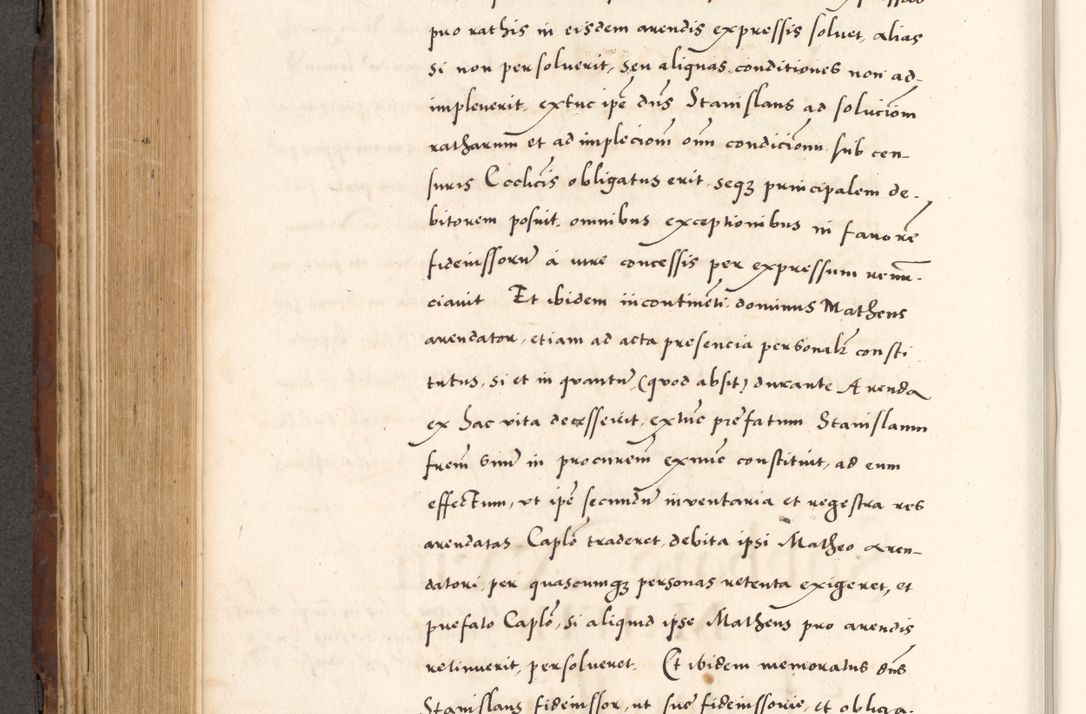 pro rathis in eisdem arendis expressis soluet, alias
si non persoluerit, seu aliquas conditiones non ad-
impleuerit, extuc ipe dns Stanislaus ad solucioem
ratharum et ad implecionem omn condicionu sub cen-
suris Ecclicis obligatus erit, seqz principalem de-
bitorem posuit, omnibus exceptionibus in fauore
fideiussoru a iure concessis per expressum renu-
ciauit Et ibidem incontineti dominus Matheus
arendator, etiam ad acta presencia personalr consti
tutus, si et in quantu, (quod absit) durante Arenda
ex hac vita decesserit, extuc prefatum Stanislaum
frem suu in procurem exnuc constituit, ad eum
effectum, vt ipe secundu inuentaria et regestra res
arendatas Caplo traderet, debita ipsi Matheo aren-
datori, per quascumqz personas retenta exigeret, et
prefato Caplo, si aliquid ipse Matheus pro arendis
retinuerit, persolueret. Et ibidem memoratus dns
Stanislaus fideiussor, ut sue fideiussorie, et obliga-